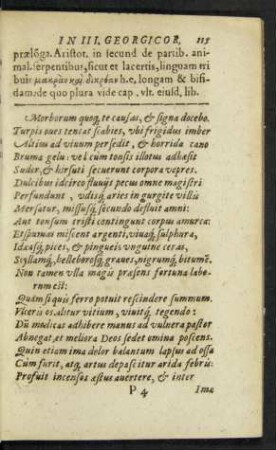 IN III. GEORGICOR. 115
prælõga. Aristot. in secund de partib. ani-
mal. serpentibus, sicut et lacertis, linguam tri
buit μακρὰν καὶ δίκρουν h.e. longam & bifi-
dam: de quo plura vide cap. vlt. eiusd. lib.
Morborum quoq; te causas, & signa docebo.
Turpis oues tentat scabies, vbi frigidus imber
Altius ad viuum persedit, & horrida cano
Bruma gelu: vel cùm tonsis illotus adhæsit
Sudor, & hirsuti secuerunt corpora vepres.
Dulcibus idcirco fluuijs pecus omne magistri
Perfundunt, vdisq; aries in gurgite villis
Mersatur, missusq; secundo defluit amni:
Aut tonsum tristi contingunt corpus amurca:
Et spumas miscent argenti, viuaq; sulphura,
Idæasq; pices, & pingueis vnguine ceras,
Scyllamq; helleborosq; graues, nigrumq; bitumē.
Non tamen vlla magis præsens fortuna labo-
rum est:
Quàm si quis ferro potuit rescindere summum
Vlceris os. alitur vitium, viuitq; tegendo:
Dū medicas adhibere manus ad vulnera pastor
Abnegat, et meliora Deos sedet omina poscens.
Quin etiam ima dolor balantum lapsus ad ossa
Cùm furit, atq; artus depascitur arida febris:
Profuit incensos æstus auertere, & inter
P 4 Ima